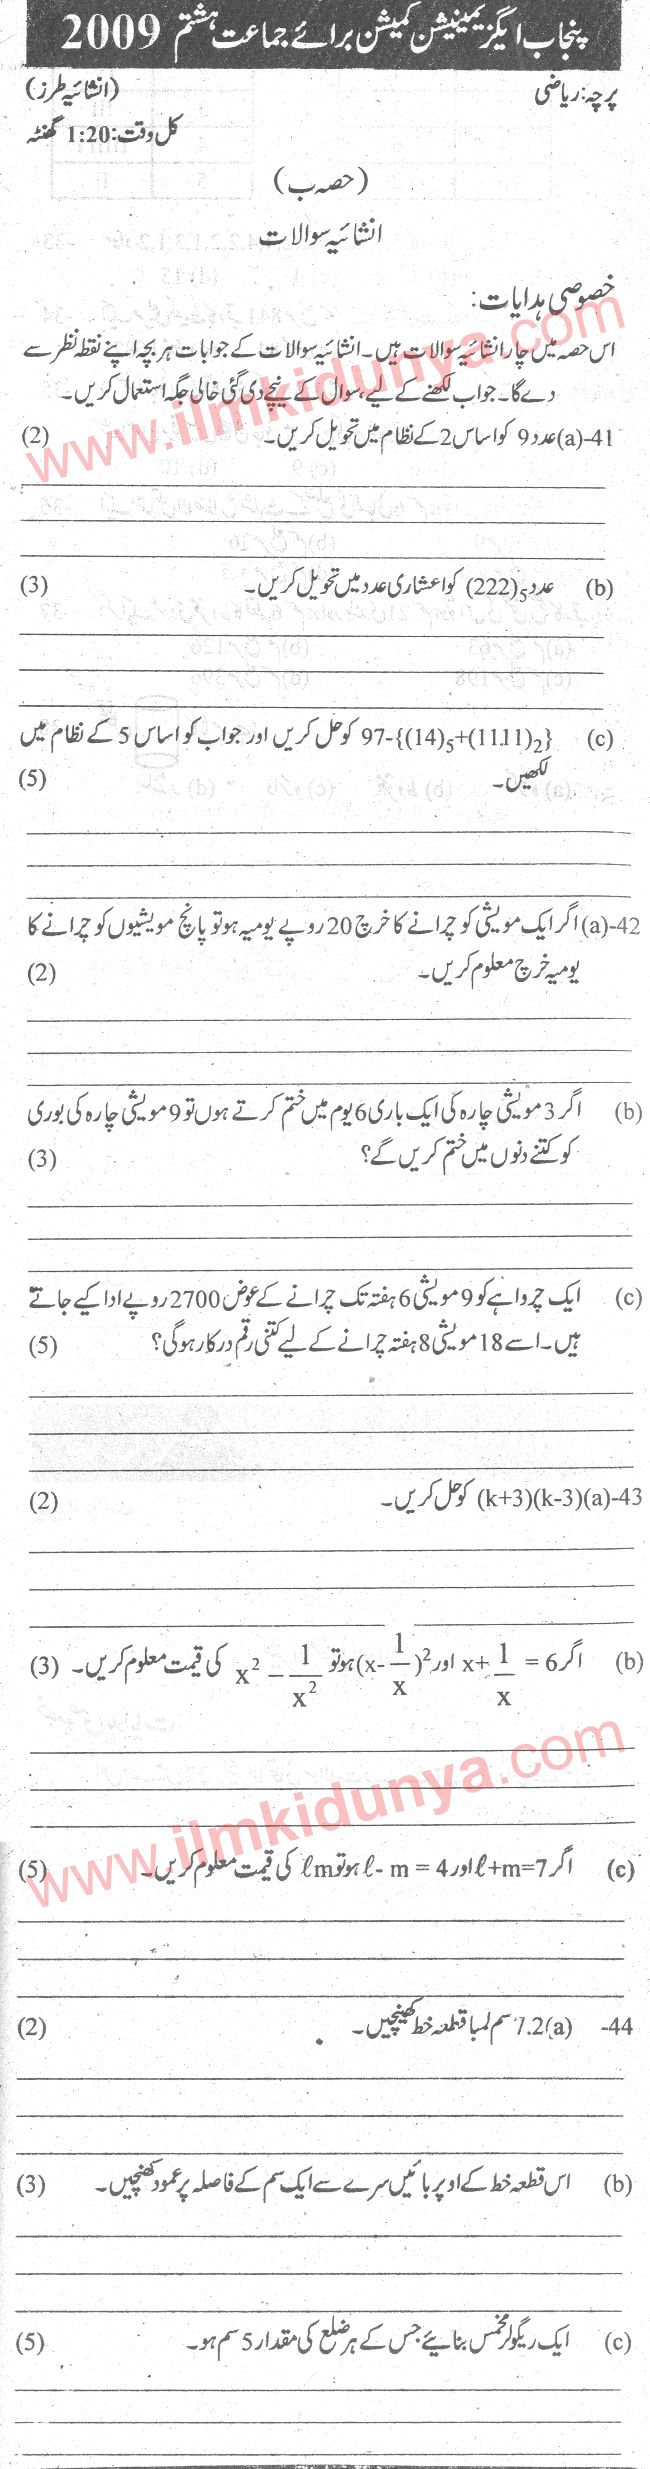 پنجاب ایگزیمینیشن کمیشن برائے جماعت ہشتم 2009
پرچہ: ریاضی (انشائیہ طرز)
کل وقت: 1:20 گھنٹہ
(حصہ ب)
انشائیہ سوالات
خصوصی ہدایات:
اس حصہ میں چار انشائیہ سوالات ہیں۔ انشائیہ سوالات کے جوابات ہر بچہ اپنے نقطہ نظر سے
دے گا۔ جواب لکھنے کے لیے ہر سوال کے نیچے دی گئی خالی جگہ استعمال کریں۔
www.ilmkidunya.com
41-(a) عدد 9 کو اساس 2 کے نظام میں تحویل کریں۔ (2)
(b) عدد (222)₅ کو اعشاری عدد میں تحویل کریں۔ (3)
(c) 97-{(14)₅+(11.11)₂} کو حل کریں اور جواب کو اساس 5 کے نظام میں
لکھیں۔ (5)
42-(a) اگر ایک مویشی کو چرانے کا خرچ 20 روپے یومیہ ہو تو پانچ مویشیوں کو چرانے کا
یومیہ خرچ معلوم کریں۔ (2)
(b) اگر 3 مویشی چارہ کی ایک باری 6 یوم میں ختم کرتے ہوں تو 9 مویشی چارہ کی بوری
کو کتنے دنوں میں ختم کریں گے؟ (3)
(c) ایک چرواہے کو 9 مویشی 6 ہفتہ تک چرانے کے عوض 2700 روپے ادا کیے جاتے
ہیں۔ اسے 18 مویشی 8 ہفتہ چرانے کے لیے کتنی رقم درکار ہو گی؟ (5)
43-(a) (k+3)(k-3) کو حل کریں۔ (2)
(b) اگر x+1/x = 6 اور (x-1/x)² ہو تو x² − 1/x² کی قیمت معلوم کریں۔ (3)
www.ilmkidunya.com
(c) اگر ℓ+m=7 اور ℓ- m = 4 ہو تو ℓm کی قیمت معلوم کریں۔ (5)
44- (a) 7.2 سم لمبا قطعہ خط کھینچیں۔ (2)
(b) اس قطعہ خط کے اوپر بائیں سرے سے ایک سم کے فاصلہ پر عمود کھنچیں۔ (3)
(c) ایک ریگولر مخمس بنائیے جس کے ہر ضلع کی مقدار 5 سم ہو۔ (5)